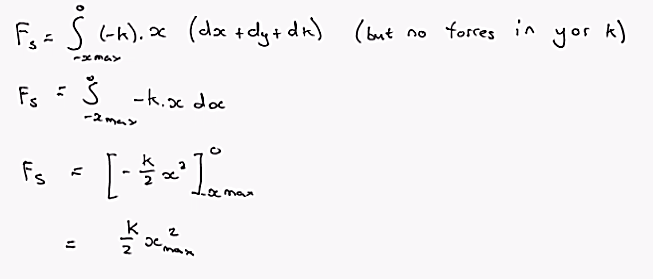 F_s = ∫_{-x max}^{0} (-k).x (dx + dy + dk) (but no forces in y or k)
F_s = ∫_{-x max}^{0} -k.x dx
F_s = [-k/2 x²]_{-x max}^{0}
= k/2 x²_{max}